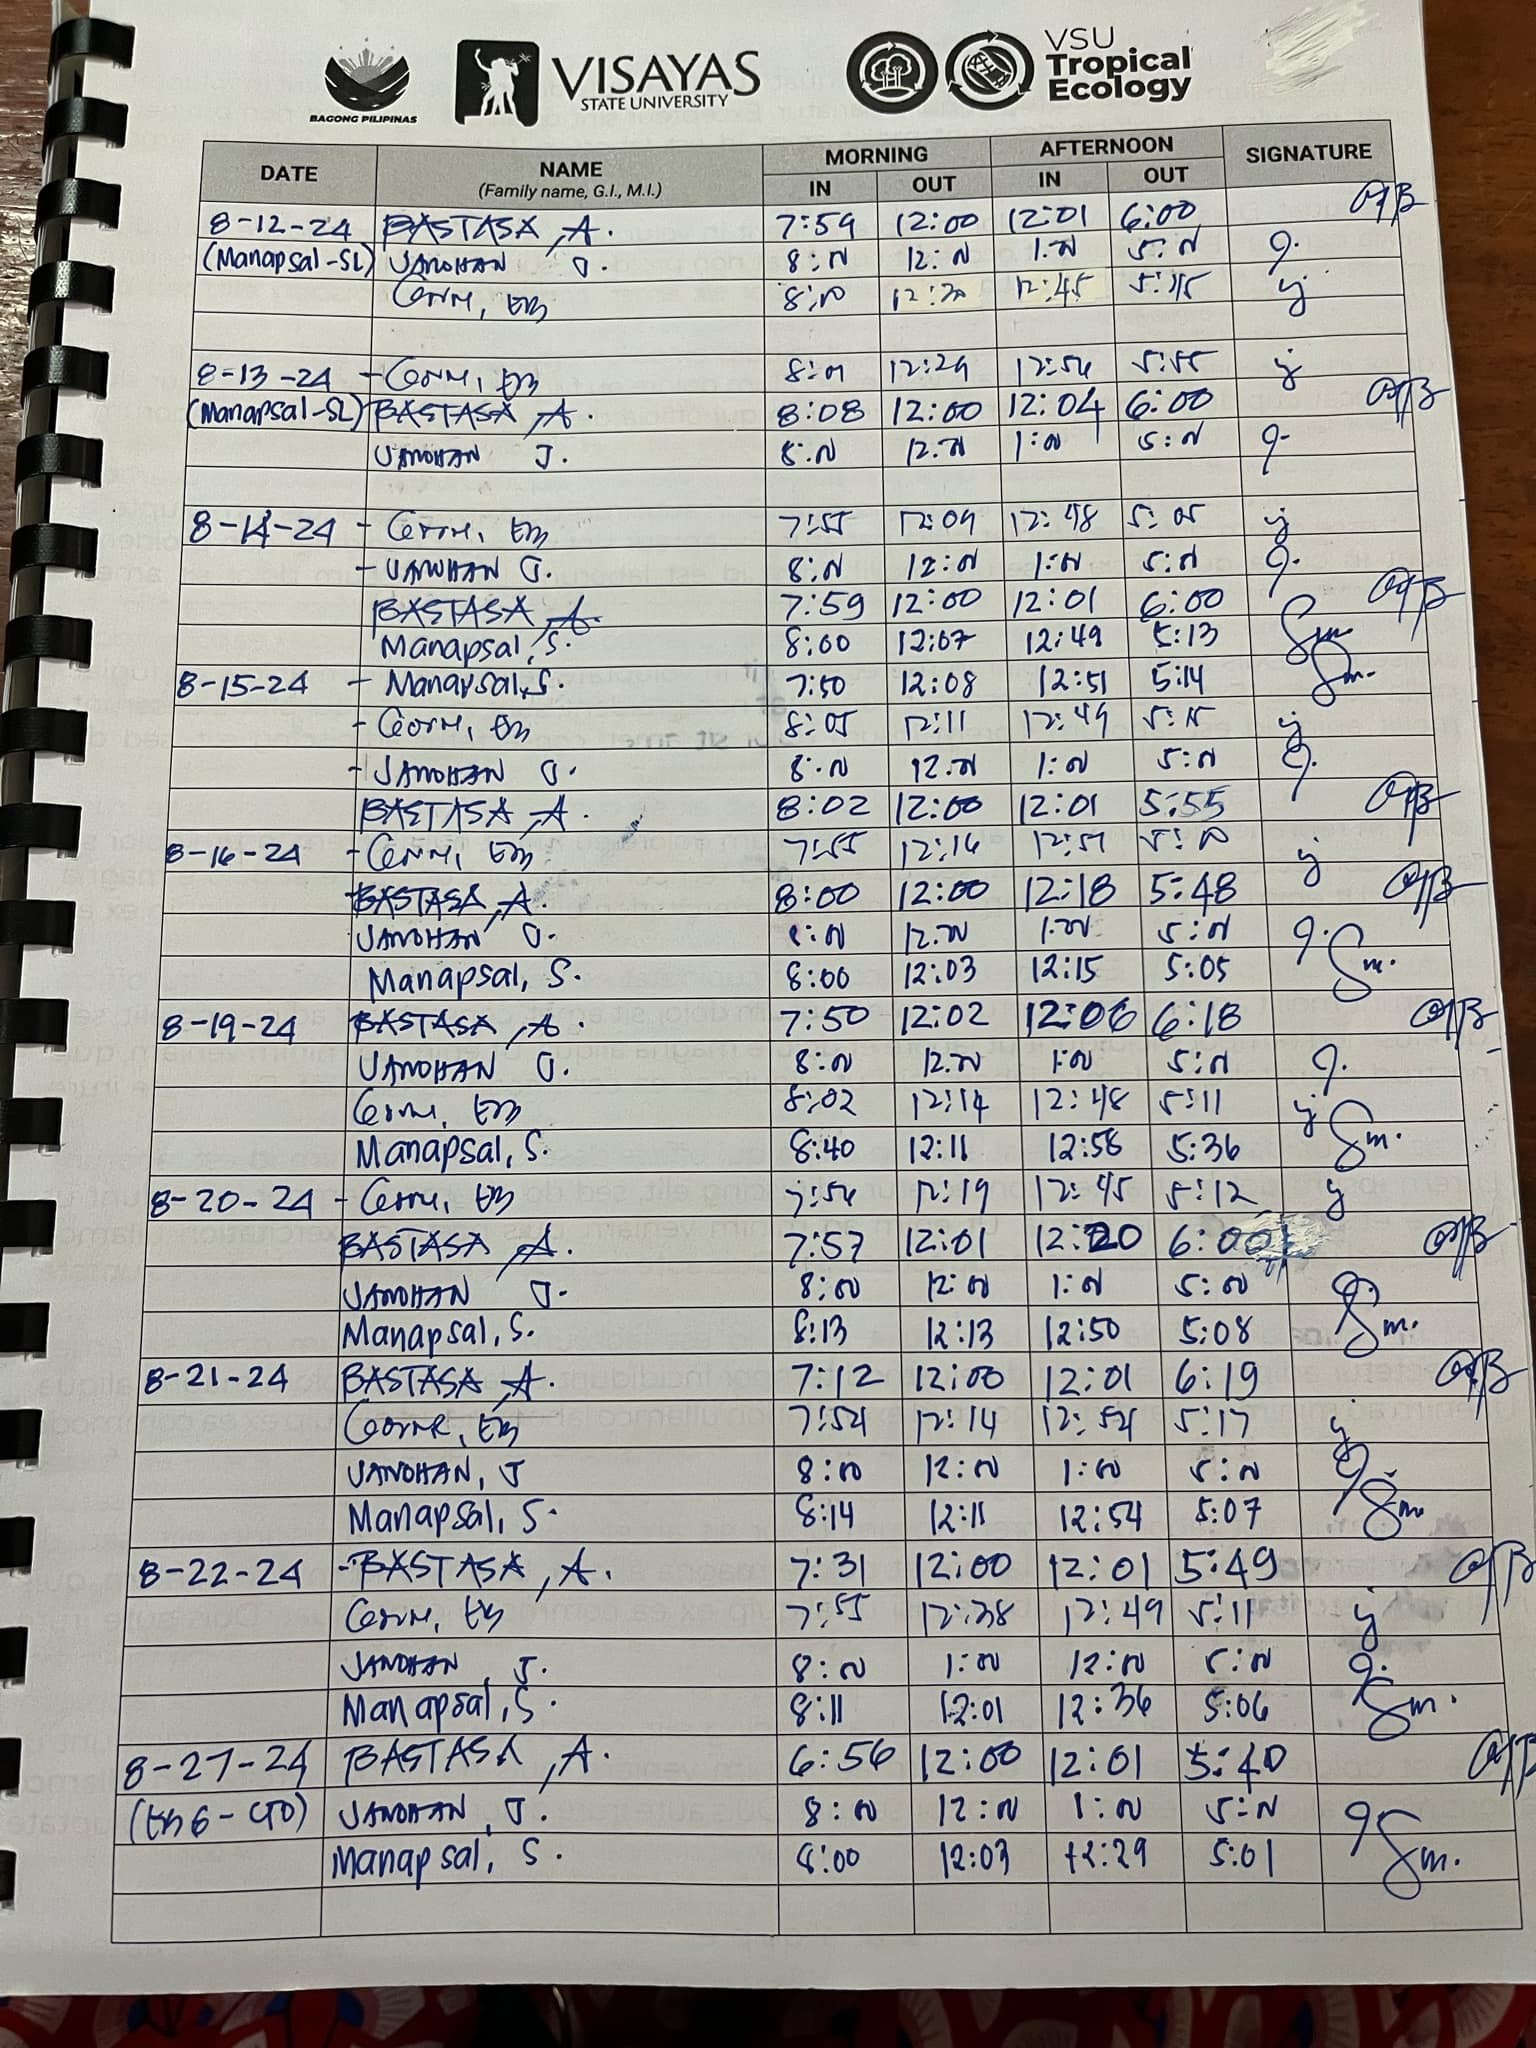 BAGONG PILIPINAS
VISAYAS
STATE UNIVERSITY
VSU
Tropical
Ecology
DATE NAME MORNING AFTERNOON SIGNATURE
(Family name, G.I., M.I.) IN OUT IN OUT
8-12-24 BASTASA, A. 7:59 12:00 12:01 6:00
(Manapsal-SL) JANOHAN J. 8:00 12:00 1:00 5:00
8:00 12:30 12:45 5:45
8-13-24 - 8:01 12:29 12:54 5:55
(Manapsal-SL) BASTASA, A. 8:08 12:00 12:04 6:00
JANOHAN J. 8:00 12:00 1:00 5:00
8-14-24 - 7:55 12:09 12:48 5:05
- JANOHAN J. 8:00 12:00 1:00 5:00
BASTASA, A. 7:59 12:00 12:01 6:00
Manapsal, S. 8:00 12:07 12:49 5:13 Sm
8-15-24 - Manapsal, S. 7:50 12:08 12:51 5:14 Sm.
- 8:05 12:11 12:49 5:15
- JANOHAN J. 8:00 12:00 1:00 5:00
BASTASA, A. 8:02 12:00 12:01 5:55
8-16-24 - 7:55 12:16 12:51 5:00
BASTASA, A. 8:00 12:00 12:18 5:48
JANOHAN J. 8:00 12:00 1:00 5:00
Manapsal, S. 8:00 12:03 12:15 5:05 Sm.
8-19-24 BASTASA, A. 7:50 12:02 12:06 6:18
JANOHAN J. 8:00 12:00 1:00 5:00
8:02 12:14 12:48 5:11
Manapsal, S. 8:40 12:11 12:58 5:36 Sm.
8-20-24 - 7:54 12:19 12:45 5:12
BASTASA, A. 7:57 12:01 12:20 6:00
JANOHAN J. 8:00 12:00 1:00 5:00
Manapsal, S. 8:13 12:13 12:50 5:08 Sm.
8-21-24 BASTASA, A. 7:12 12:00 12:01 6:19
7:54 12:14 12:54 5:17
JANOHAN, J 8:00 12:00 1:00 5:00
Manapsal, S. 8:14 12:11 12:54 5:07 Sm
8-22-24 -BASTASA, A. 7:31 12:00 12:01 5:49
7:55 12:38 12:49 5:11
JANOHAN, J. 8:00 1:00 12:00 5:00
Manapsal, S. 8:11 12:01 12:36 5:06 Sm.
8-27-24 BASTASA, A. 6:56 12:00 12:01 5:40
JANOHAN, J. 8:00 12:00 1:00 5:00
Manapsal, S. 8:00 12:03 12:29 5:01 Sm.